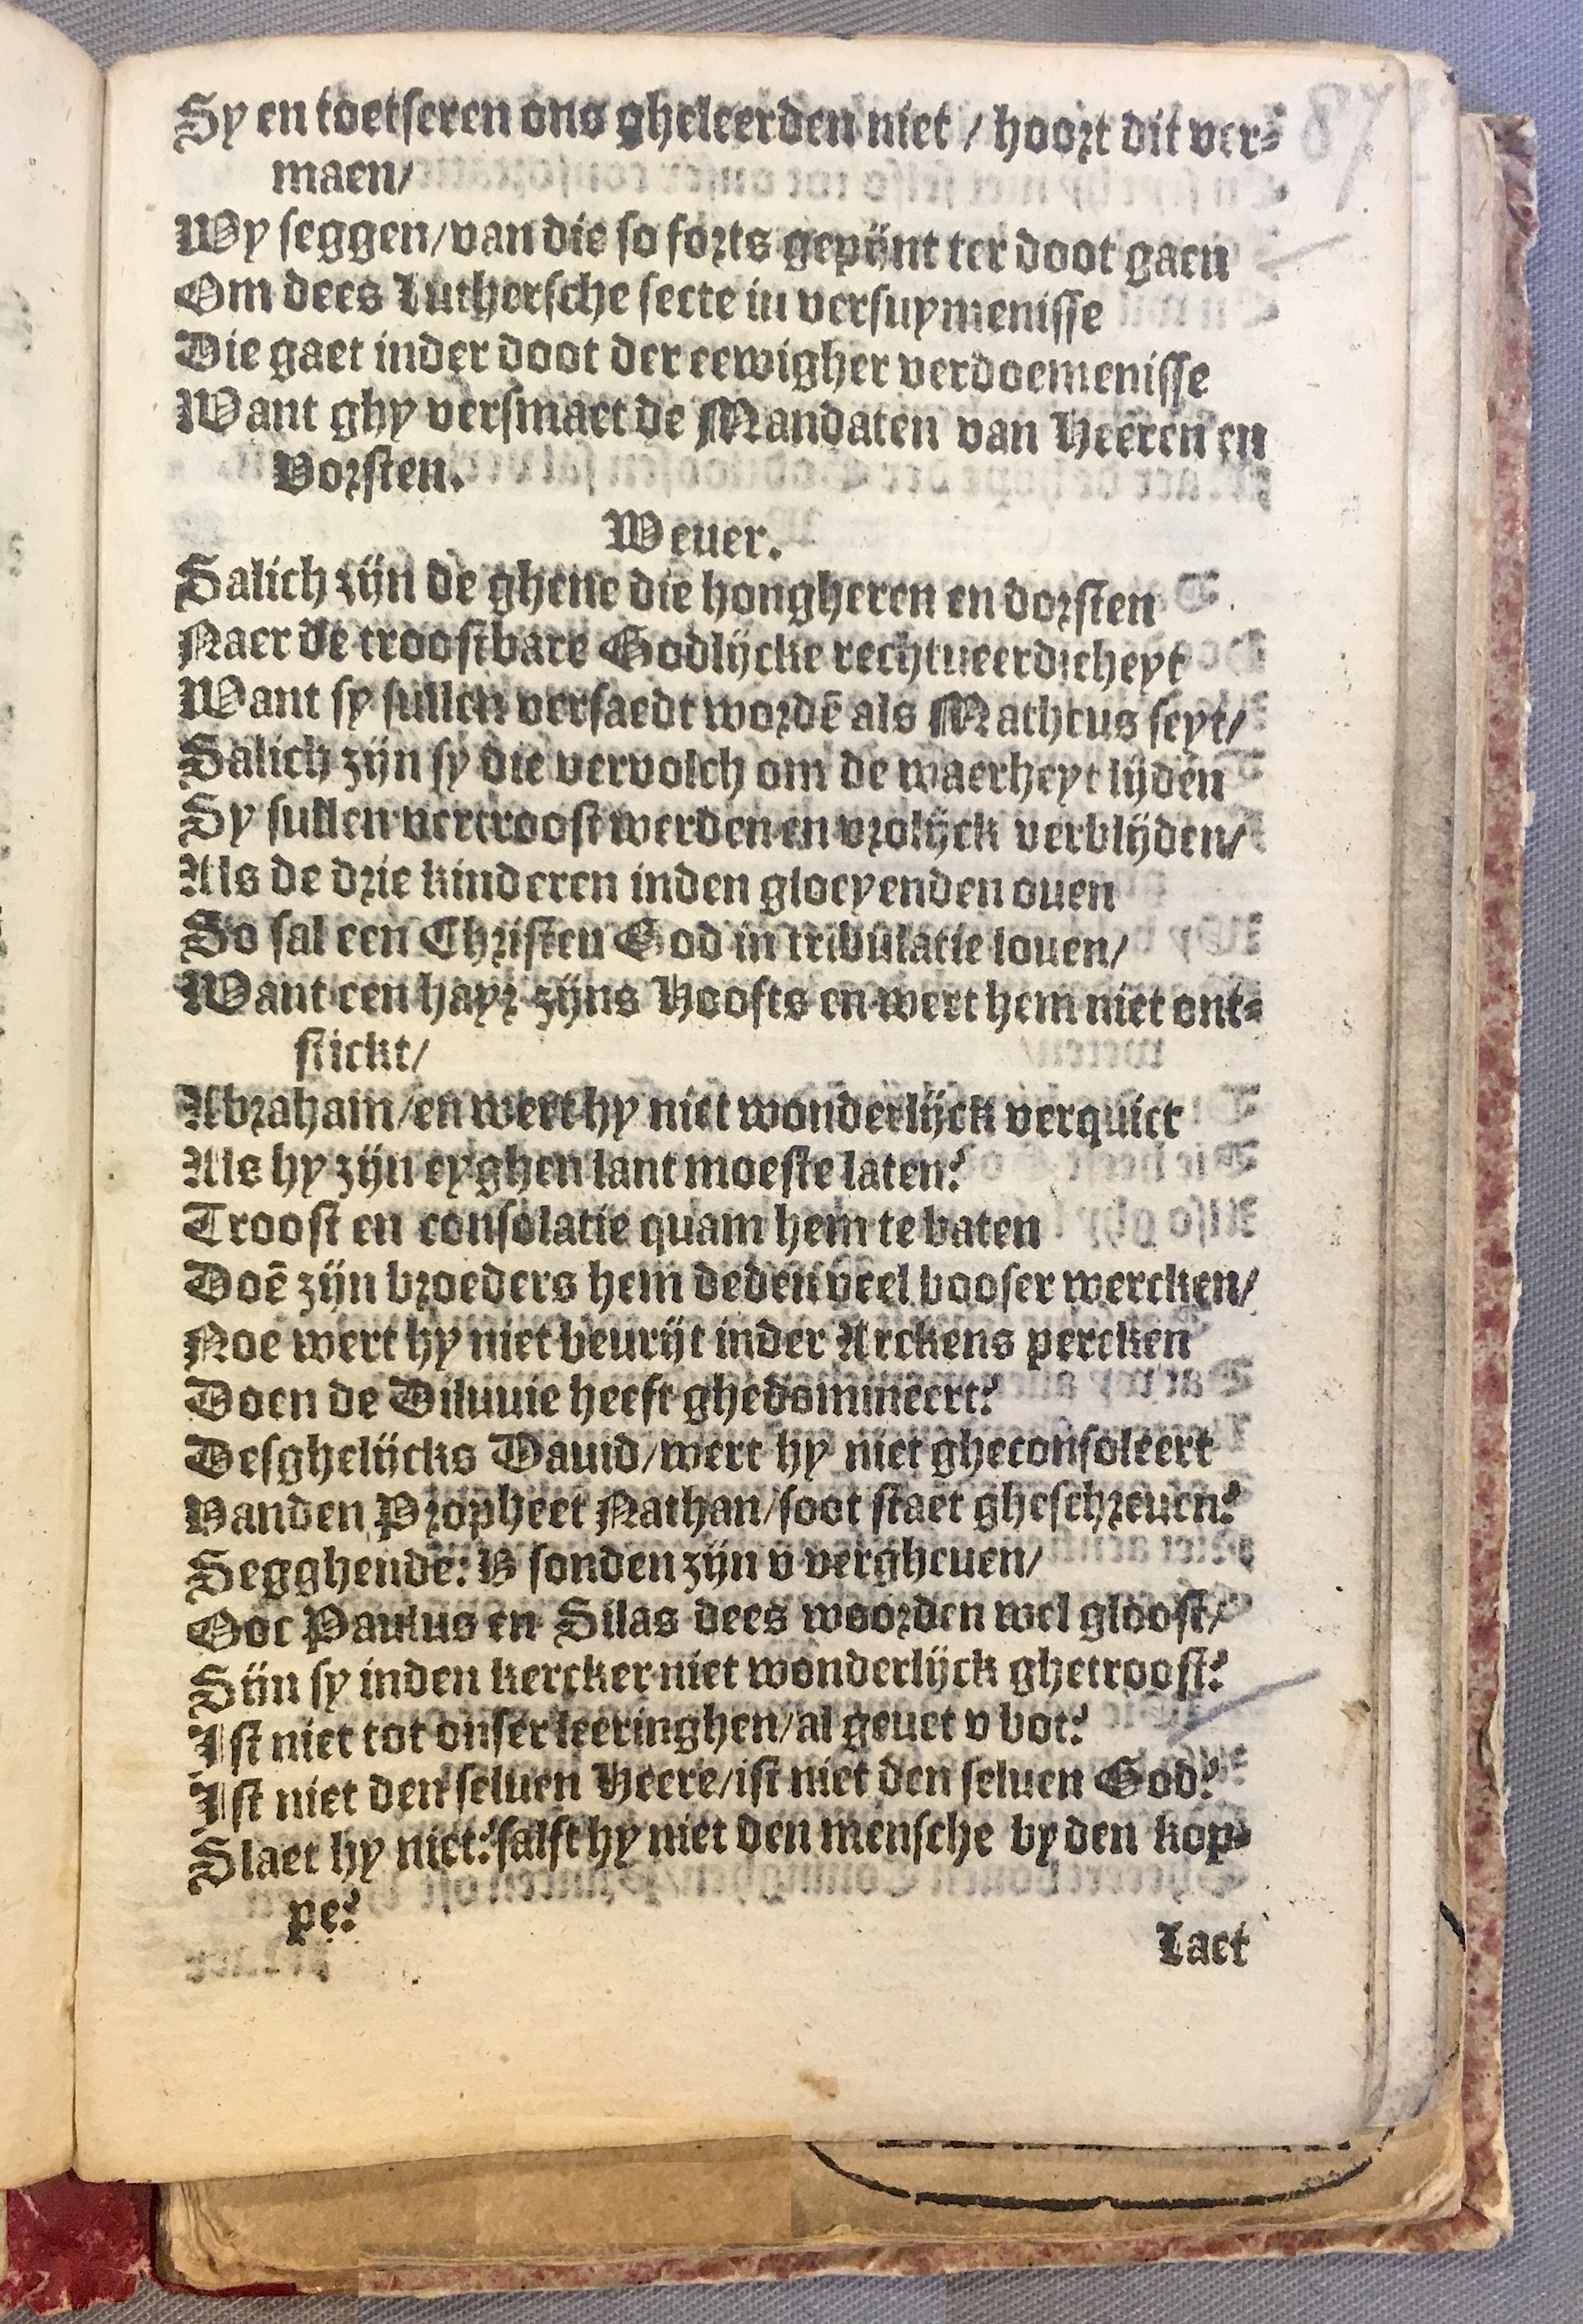 Sy en toetseren ons gheleerden niet / hoort dit ver-
maen/
Wy seggen/van die so forts gepijnt ter doot gaen
Om dees Luthersche secte in versuymenisse
Die gaet inder doot der eewigher verdoemenisse
Want ghy versmaet de Mandaten van Heeren en
Vorsten.
Weuer.
Salich zijn de ghene die hongheren en dorsten
Naer de troostbare Godlijcke rechtueerdicheyt
Want sy sullen versaedt wordē als Matheus seyt/
Salich zijn sy die vervolch om de waerheyt lijden
Sy sullen vertroost werden en vrolijck verblijden/
Als de drie kinderen inden gloeyenden ouen
So sal een Christen God in tribulatie louen/
Want een hayr zijns Hoofts en wert hem niet ont-
stickt/
Abraham/en wert hy niet wonderlijck verquict
Als hy zijn eyghen lant moeste laten?
Troost en consolatie quam hem te baten
Doē zijn broeders hem deden veel booser wercken/
Noe wert hy niet beurijt inder Arckens percken
Doen de Diluuie heeft ghedomineert?
Desghelijcks Dauid/wert hy niet gheconsoleert
Vanden Propheet Nathan/soot staet gheschreuen?
Segghende: V sonden zijn v vergheuen/
Ooc Paulus en Silas dees woorden wel gloost/
Sijn sy inden kercker niet wonderlijck ghetroost?
Ist niet tot onser leeringhen/al geuet v bot?
Ist niet den seluen Heere/ist niet den seluen God?
Slaet hy niet? salft hy niet den mensche by den kop-
pe?
Laet
87